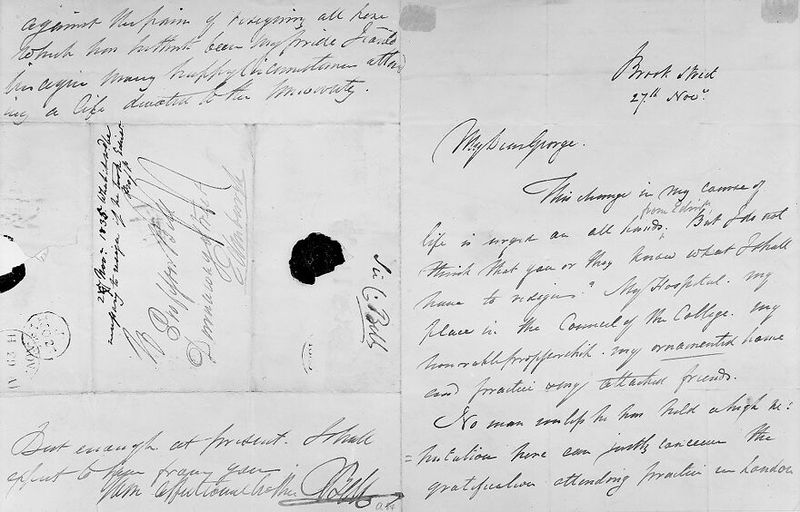 Brook Street
27th Novr.
My Dear George.
This change in my course of
life is urged on all hands from Edinr. But I do not
think that you or they know what I shall
have to resign? My Hospital. my
place in the Council of the College. my
honorable proffesorship. my ornamented house
and practice & my attached friends.
No man unless he has held a high re:
=putation here can justly conceive the
gratification attending practice in London
against the pain of resigning all here
which has hitherto been my pride I could
imagine many happy circumstances attend
ing a life devoted to the University.
But enough at present. I shall
expect to hear from you
Yours affectionate brother C Bell
27 Novr. 1835
Proffessor Bell
Darnaway Street
Edinburgh
Sir C. Bell